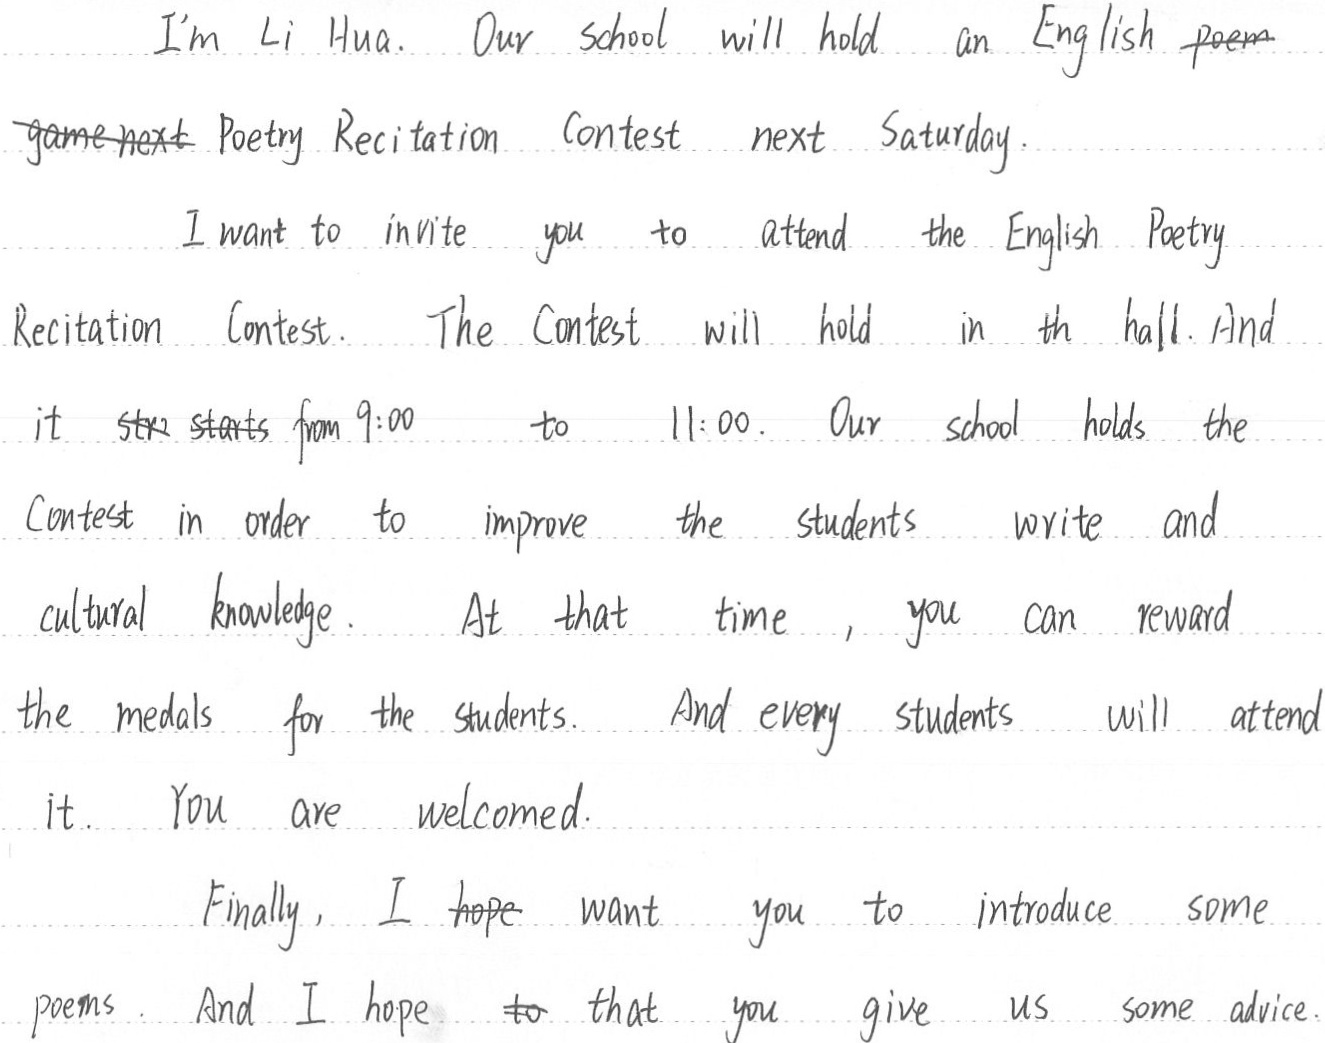 I'm Li Hua. Our school will hold an English poem
game next Poetry Recitation Contest next Saturday.
I want to invite you to attend the English Poetry
Recitation Contest. The Contest will hold in th hall. And
it starts from 9:00 to 11:00. Our school holds the
Contest in order to improve the students write and
cultural knowledge. At that time, you can reward
the medals for the students. And every students will attend
it. You are welcomed.
Finally, I hope want you to introduce some
poems. And I hope to that you give us some advice.